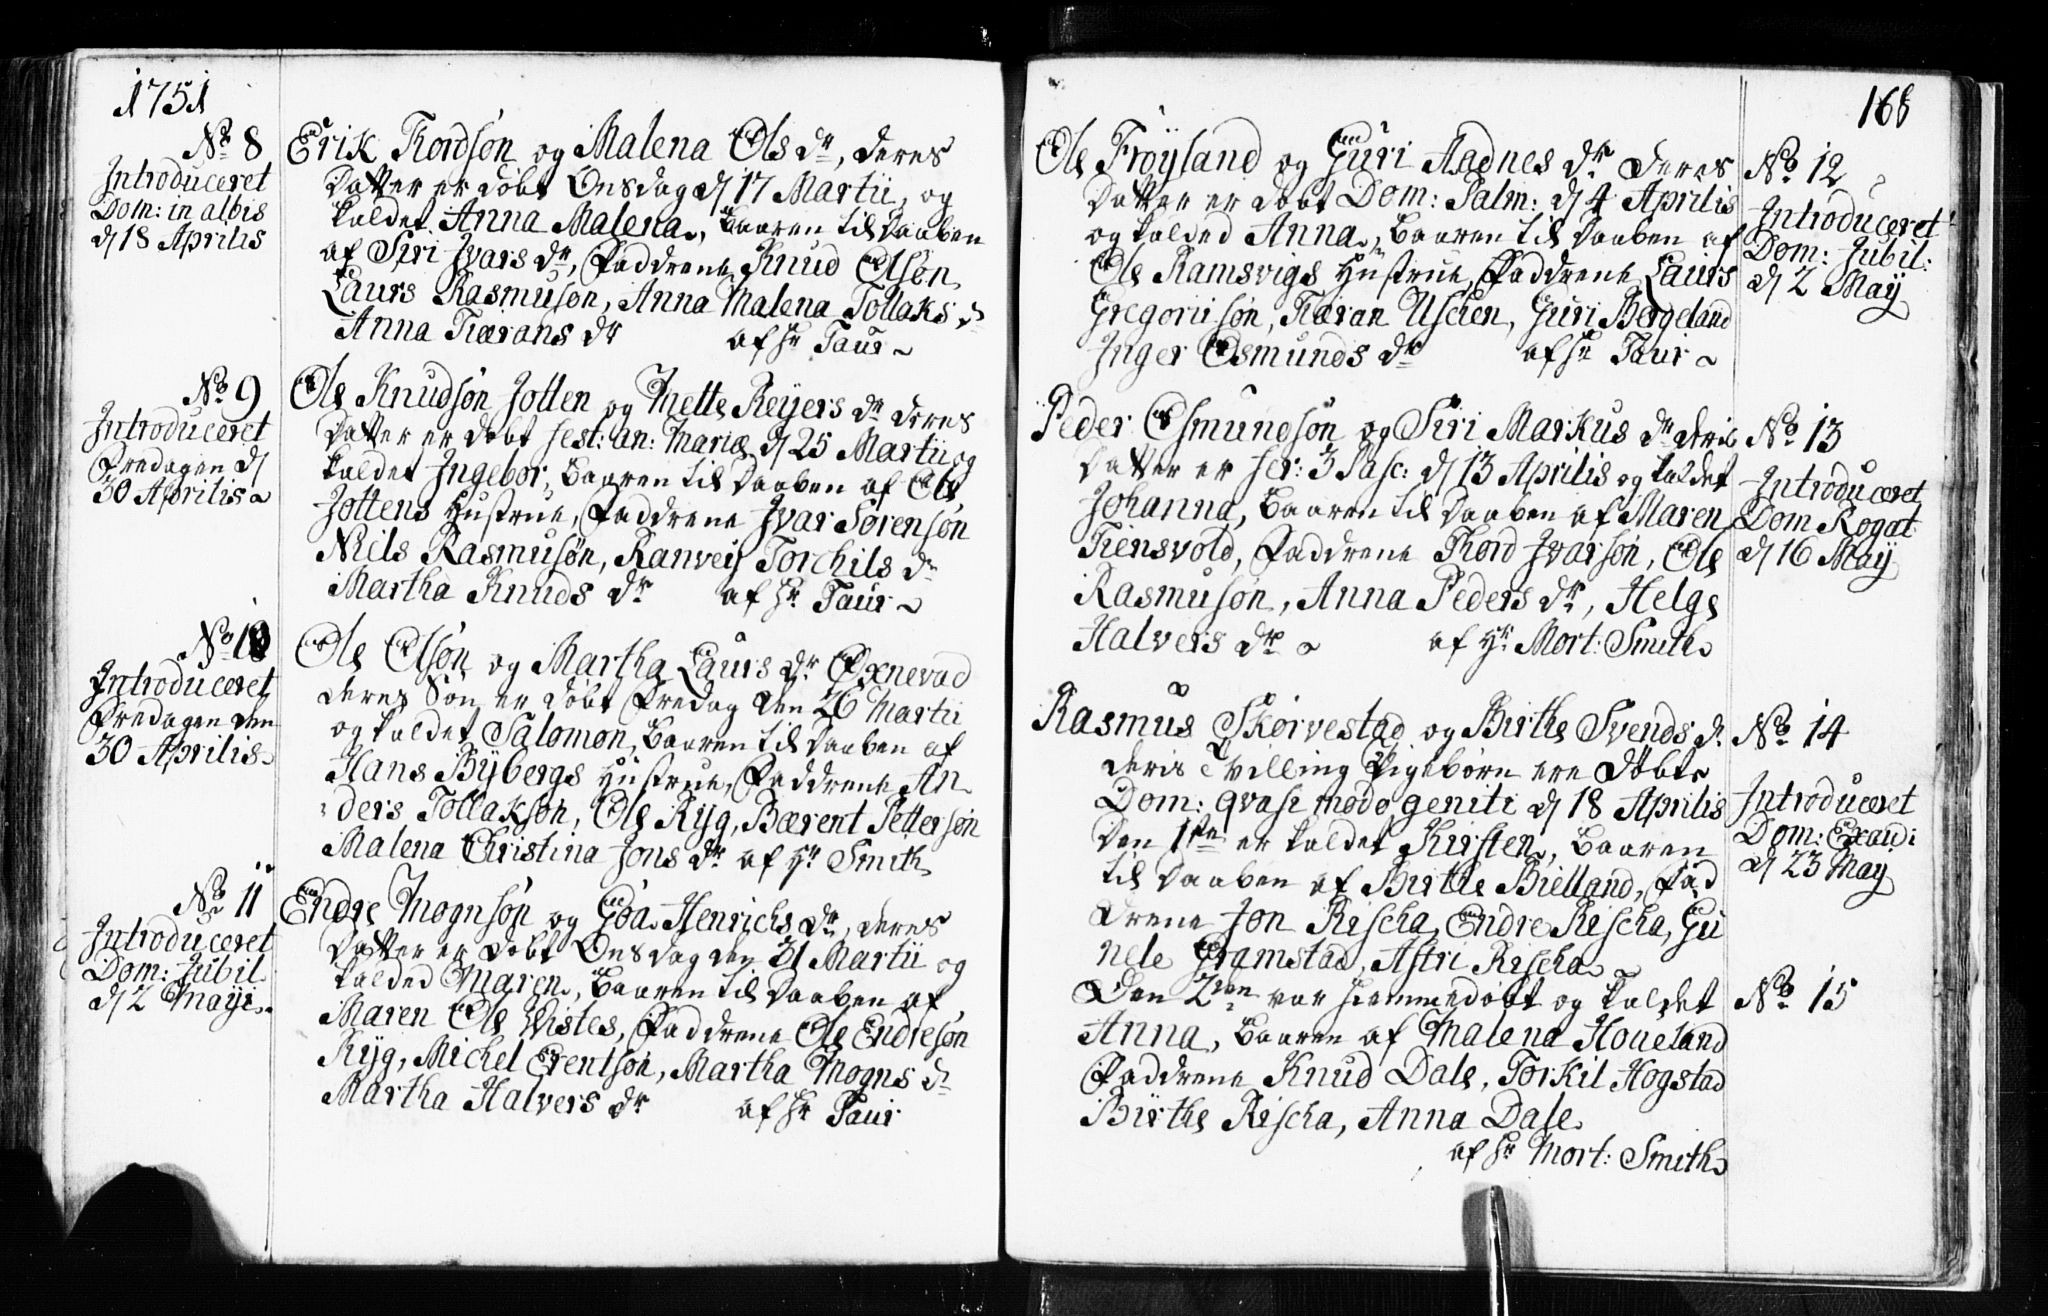 1751
No 8
Introduceret
Dom: in albis
d 18 Aprilis
Erik Tordsøn og Malena Ols dr, deres
Datter er døbt Onsdag d 17 Martii, og
kaldet Anna Malena, baaren til Daaben
af Siri Ivars dr, Faddrene Knud Olsøn
Laurs Rasmusøn, Anna Malena Tollaks d
Anna Tiærans dr af hr Taur
No 9
Introduceret
Fredagen d
30 Aprilis
Ole Knudsøn Jotten og Mette Reijers dr deres
Datter er døbt fest: an: Mariæ d 25 Martii og
kaldet Ingebor, baaren til Daaben af Ole
Jottens Hustrue, Faddrene Ivar Sørensøn
Niels Rasmusøn, Ranveig Torchils dr
Martha Knuds dr af hr Taur
No 10
Introduceret
Fredagen den
30 Aprilis
Ole Olsøn og Martha Laurs dr Oxnevad
deres Søn er døbt Fredag den 26 Martii
og kaldet Salomon, baaren til Daaben af
Hans Bÿbergs Hustrue, Faddrene An
ders Tollaksøn, Ole Ryg, Bærent Pettersøn
Malena Christina Jons dr af Hr Smith
No 11
Introduceret
Dom: Jubil
d 2 Maÿi
Endre Mognsøn og Goa Henrichs dr, deres
Datter er døbt Onsdag den 31 Martii og
kalded Maren, baaren til Daaben af
Maren Ole Vistes, Faddrene Ole Endresøn
Ryg, Michel Erentsøn, Martha Mogns d
Martha Halvers dr af hr Taur
168
Ole Frøÿland og Guri Aadnes dr deres
Datter er døbt Dom: Palm: d 4 Aprilis
og kalded Anna, baaren til Daaben af
Ole Ramsvigs Hustrue, Faddrene Laurs
Gregoriisøn, Tiæran Uscien, Guri Bergeland
Inger Osmunds dr af hr Taur
No 12
Introduceret
Dom: Jubil:
d 2 May
Peder Osmundsøn og Siri Markus dr deris
Datter er fer: 3 Pasc: d 13 Aprilis og kaldet
Johanna, baaren til Daaben af Maren
Tiensvold, Faddrene Thord Ivarsøn, Ole
Rasmusøn, Anna Peders dr, Helge
Halvers dr af Hr Mort: Smith
No 13
Introduceret
Dom Rogat
d 16 Maÿ
Rasmus Skørvestad og Birthe Svends d.
deris Tvilling Pigebørn ere døbte
Dom: qvasi modo geniti d 18 Aprilis
Den 1ste er kaldet Kirsten, baaren
til Daaben af Birthe Bielland, Fad
drene Jon Rischa, Endre Rischa, Gu
nele Gramstad, Astri Rischa
No 14
Introduceret
Dom: Exaudi
d 23 May
Den 2den var hiemmedøbt og kaldet
Anna, baaren af Malena Houeland
Faddrene Knud Dale, Torkil Hogstad
Birthe Rischa, Anna Dale
af hr Mort: Smith
No 15